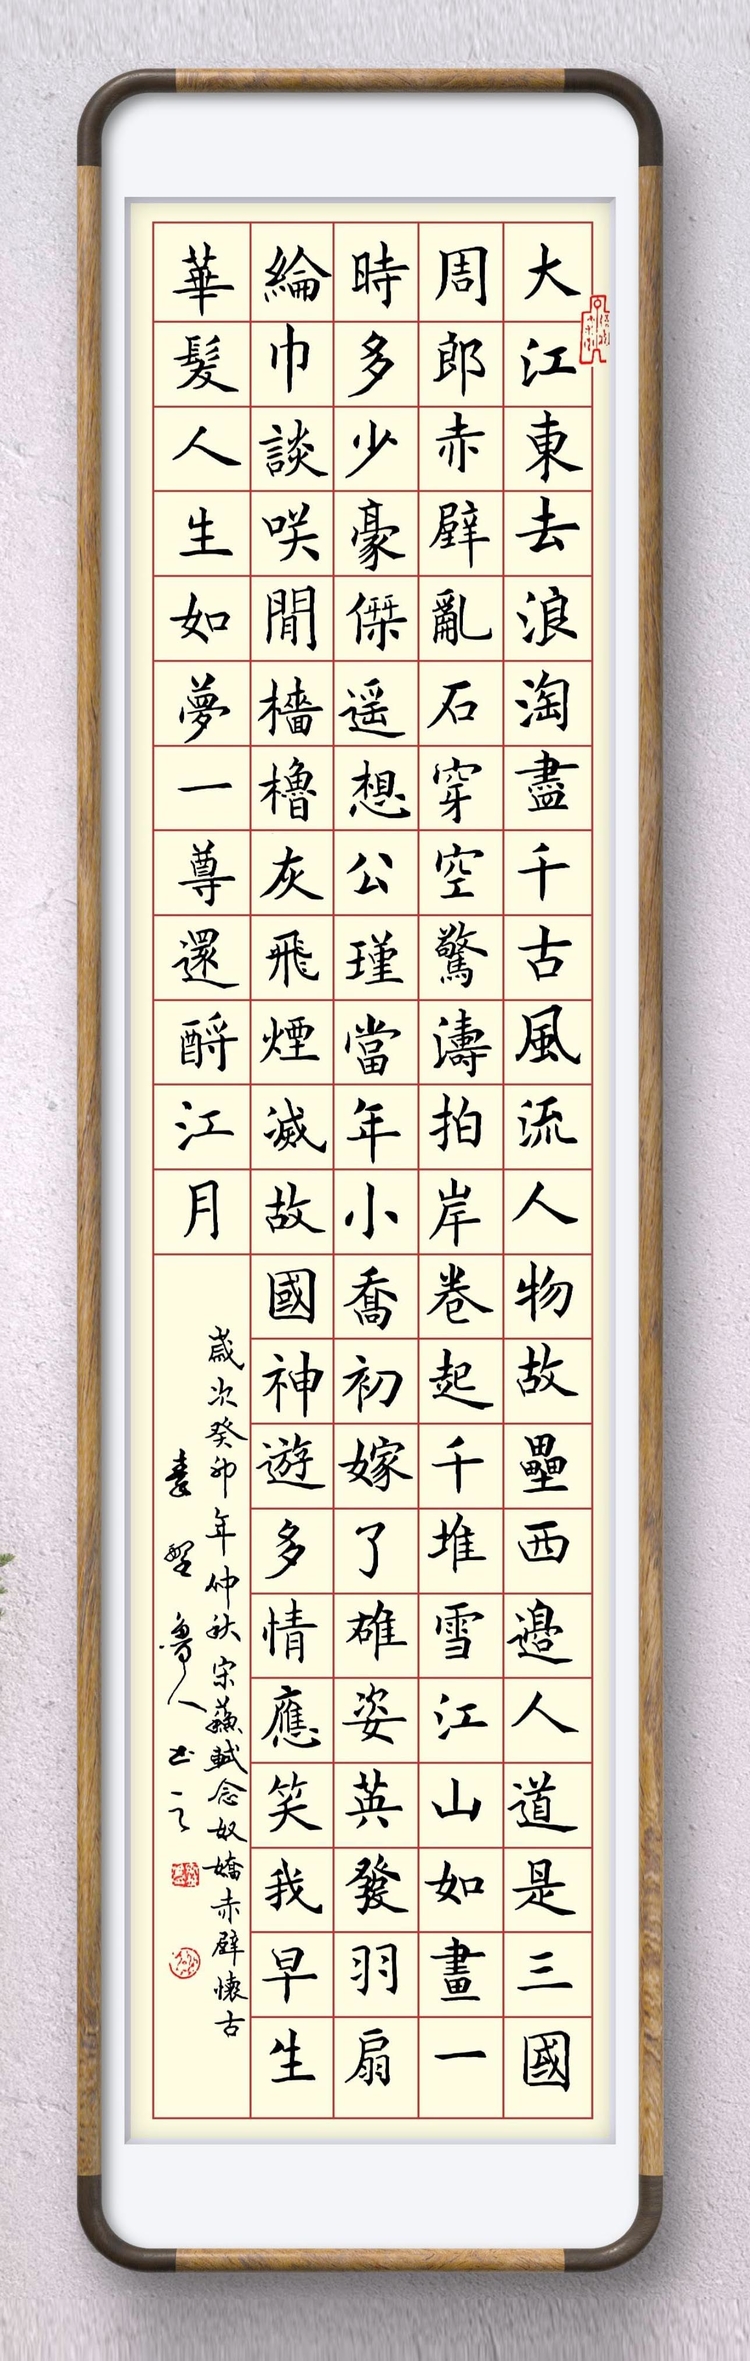 大江東去浪淘盡千古風流人物故壘西邊人道是三國
周郎赤壁亂石穿空驚濤拍岸卷起千堆雪江山如畫一
時多少豪傑遥想公瑾當年小喬初嫁了雄姿英發羽扇
綸巾談咲間檣櫓灰飛煙滅故國神遊多情應笑我早生
華髮人生如夢一尊還酹江月
歲次癸卯年仲秋宋蘇軾念奴嬌赤壁懷古
魯人书